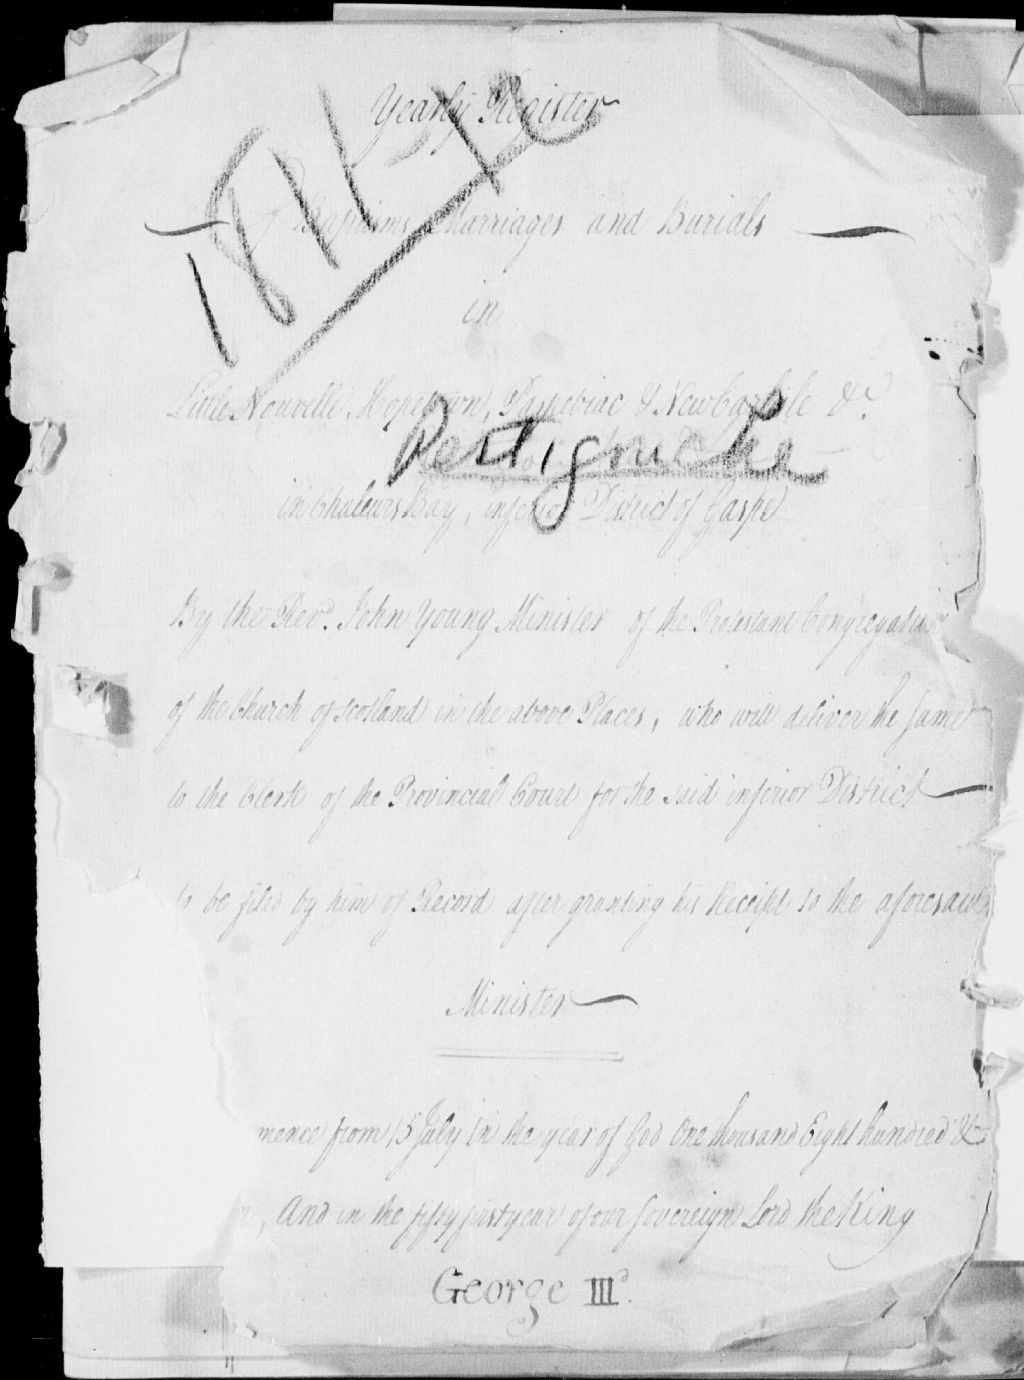 Yearly Register
of Baptisms, Marriages and Burials
in
Little Nouvelle, Hopetown, Paspebiac & New Carlisle &c.
Restigouche
in Chaleurs Bay, inferior District of Gaspé
By the Revd. John Young Minister of the Protestant Congregation
of the Church of Scotland in the above Places, who will deliver the same
to the Clerk of the Provincial Court for the said inferior District
to be filed by him of Record after granting his Receipt to the aforesaid
Minister
mence from 15 July in the year of God One thousand Eight hundred &
, And in the fifty first year of our Sovereign Lord the King
George IIId.